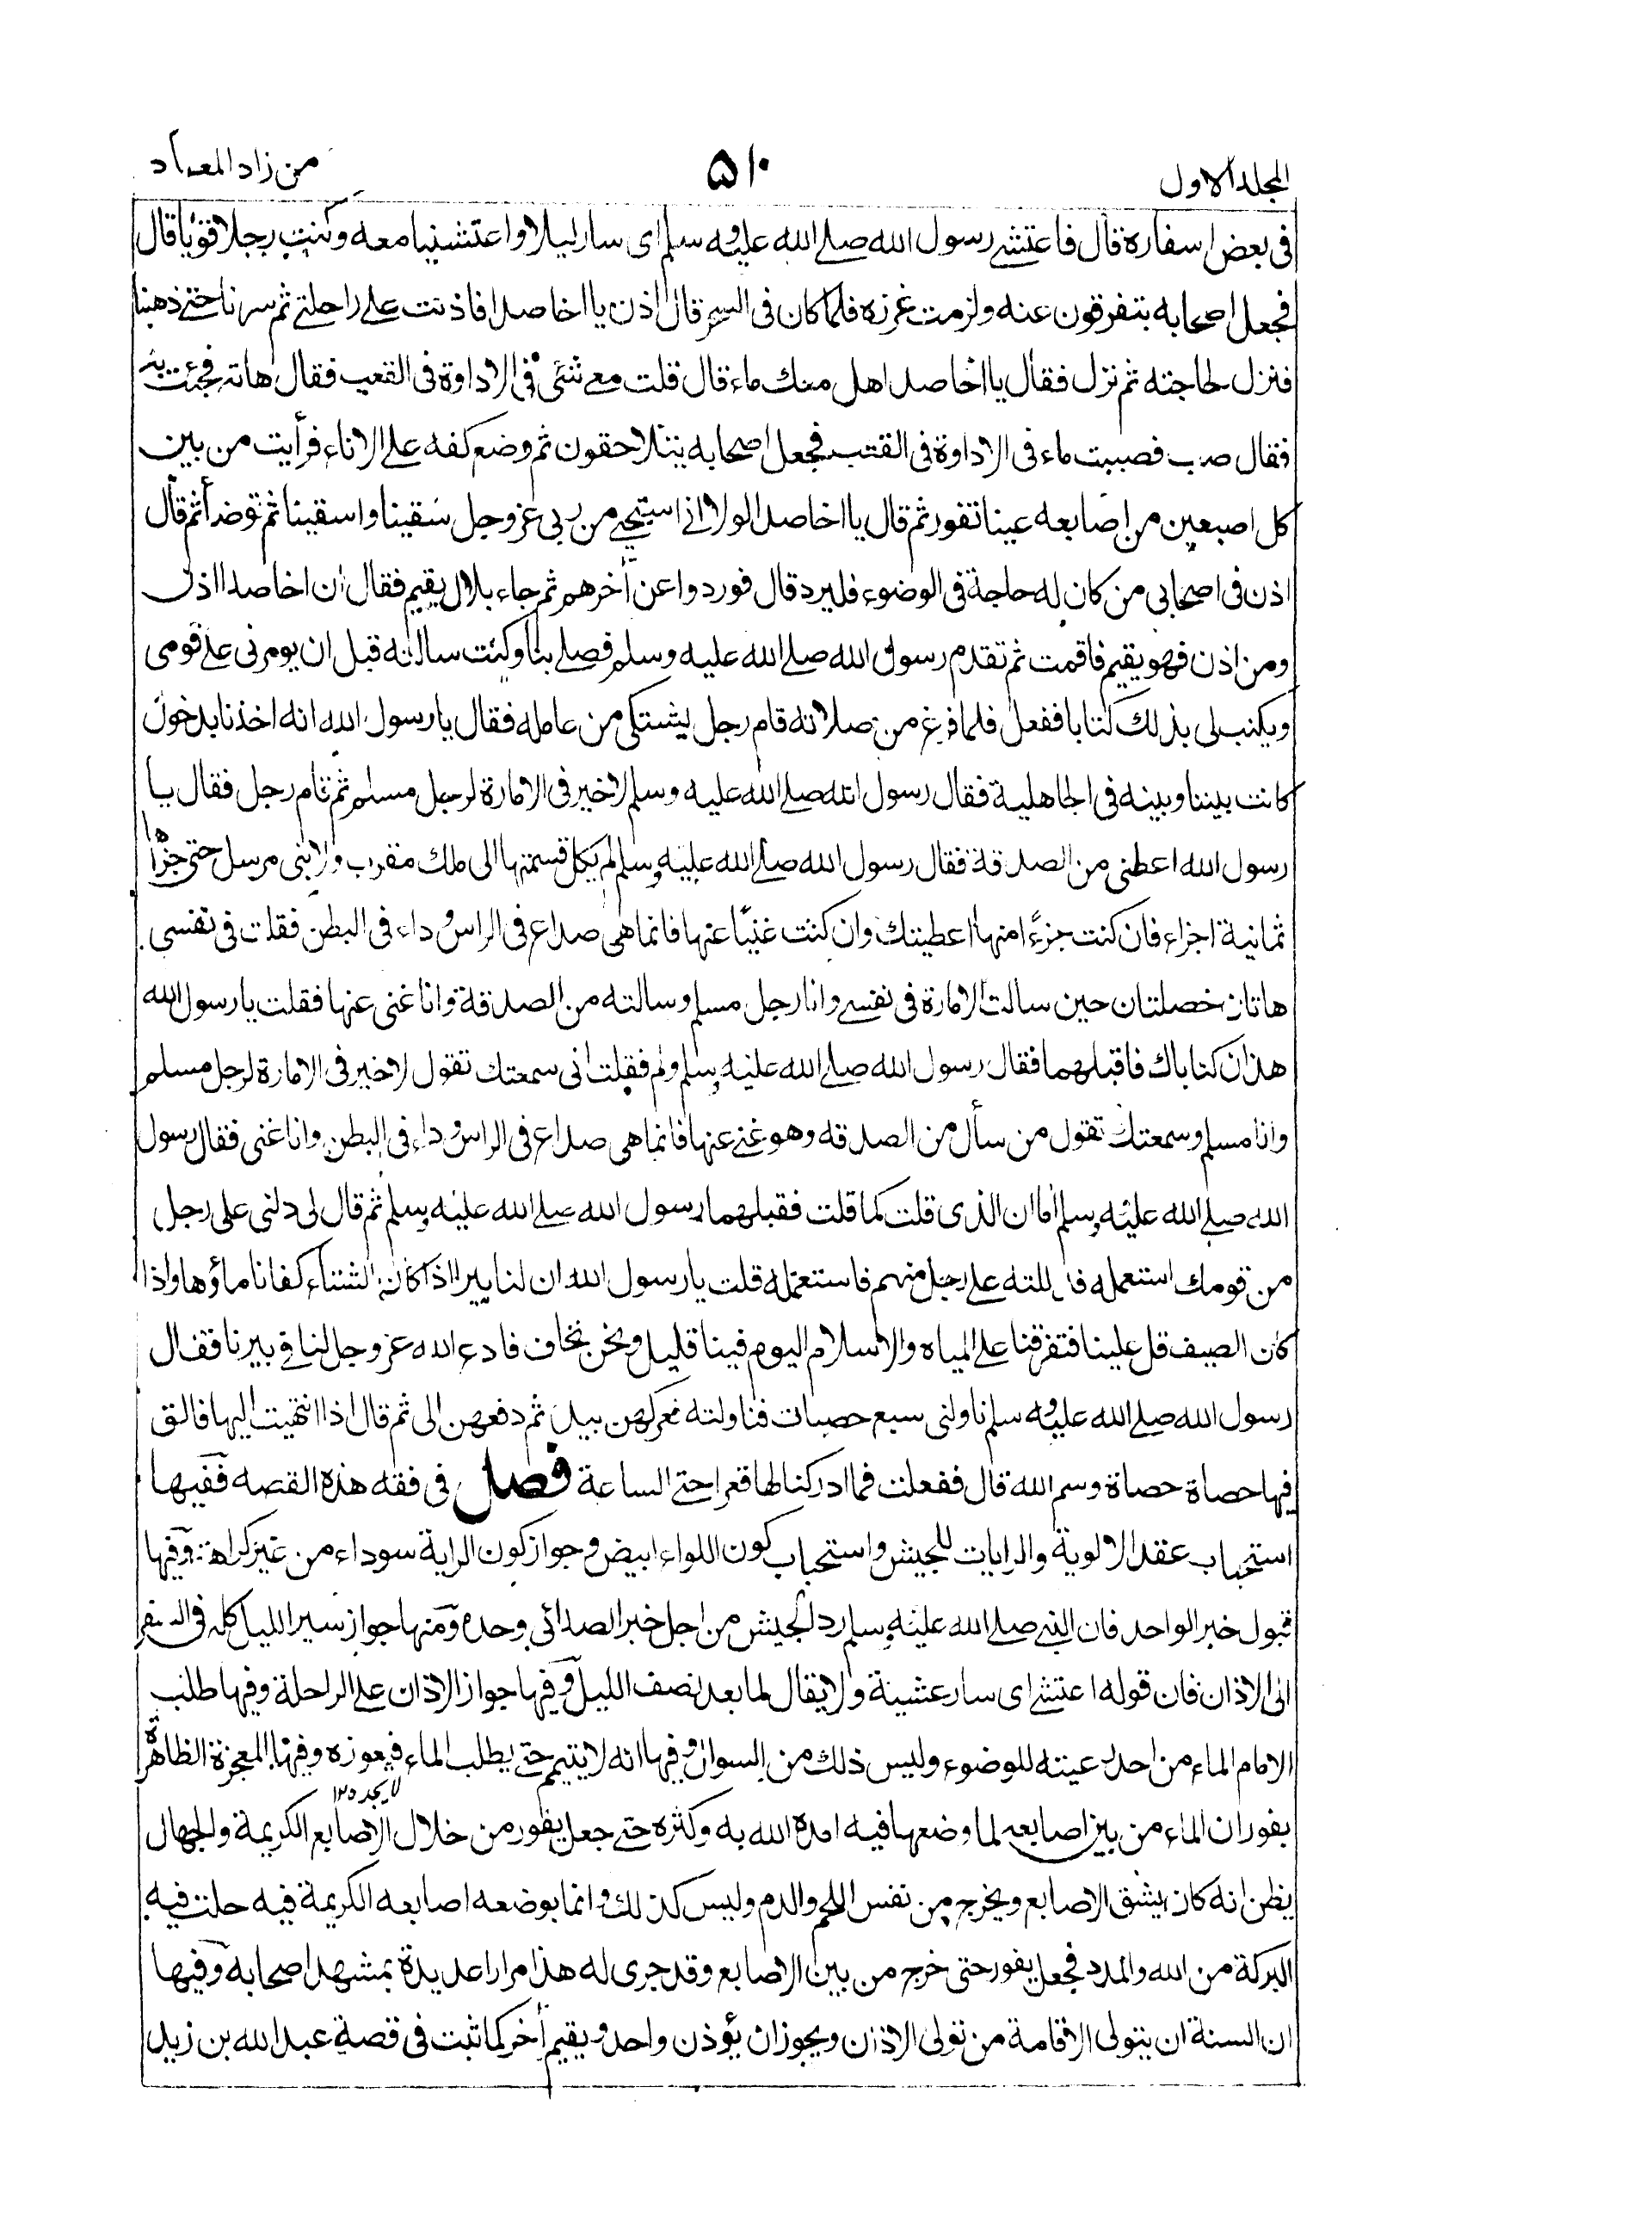 المجلد الاول
٥١٠
من زاد المعاد
فى بعض اسفاره قال فاعتشى رسول الله صلى الله عليه وسلم اى سار ليلا واعتشينا معه وكنت رجلا قويا قال
فجعل اصحابه يتفرقون عنه ولزمت غرزه فلما كان فى السحر قال اذن يا اخا صدا فاذنت على راحلتى ثم سرنا حتى ذهبنا
فنزل لحاجته ثم نزل فقال يا اخا صدا هل معك ماء قال قلت معى شئى فى الاداوة فى القعب فقال هاته فجئت به
فقال صب فصببت ماء فى الاداوة فى القتب فجعل اصحابه يتلاحقون ثم وضع كفه على الاناء فرأيت من بين
كل اصبعين من اصابعه عينا تفور ثم قال يا اخا صدا لولا انى استحيى من ربى عز وجل سقينا واسقينا ثم توضأ ثم قال
اذن فى اصحابى من كان له حاجة فى الوضوء فليرد قال فوردوا عن أخرهم ثم جاء بلال يقيم فقال ان اخا صدا اذن
ومن اذن فهو يقيم فاقمت ثم تقدم رسول الله صلى الله عليه وسلم فصلى بنا وكنت سالته قبل ان يومرنى على قومى
ويكتب لى بذلك كتابا ففعل فلما فرغ من صلاته قام رجل يشتكى من عامله فقال يا رسول الله انه اخذنا بدخول
كانت بيننا وبينه فى الجاهلية فقال رسول الله صلى الله عليه وسلم لا خير فى الامارة لرجل مسلم ثم قام رجل فقال يا
رسول الله اعطنى من الصدقة فقال رسول الله صلى الله عليه وسلم لم يكل قسمتها الى ملك مقرب ولا نبى مرسل حتى جزأها
ثمانية اجزاء فان كنت جزءً امنها اعطيتك وان كنت غنيًا عنها فانما هى صداع فى الراس وداء فى البطن فقلت فى نفسى
هاتان خصلتان حين سالت الامارة فى نفسى وانا رجل مسلم وسالته من الصدقة وانا غنى عنها فقلت يا رسول الله
هذان كتاباك فاقبلهما فقال رسول الله صلى الله عليه وسلم ولم فقلت انى سمعتك تقول لا خير فى الامارة لرجل مسلم
وانا مسلم وسمعتك تقول من سأل من الصدقه وهو غنى عنها فانما هى صداع فى الراس وداء فى البطن وانا غنى فقال رسول
الله صلى الله عليه وسلم أما ان الذى قلت كما قلت فقبلهما رسول الله صلى الله عليه وسلم ثم قال لى دلنى على رجل
من قومك استعمله فدللته على رجل منهم فاستعمله قلت يا رسول الله ان لنا بيرا اذا كان الشتاء كفانا ماؤها واذا
كان الصيف قل علينا فتفرقنا على المياه والاسلام اليوم فينا قليل ونحن نخاف فادع الله عز وجل لنا فى بيرنا فقال
رسول الله صلى الله عليه وسلم ناولنى سبع حصيات فناولته فعركهن بيده ثم دفعهن الى ثم قال اذا انتهيت اليها فالق
فيها حصاة حصاة وسم الله قال ففعلت فما ادركنا لها قعرا حتى الساعة فصل فى فقه هذه القصه ففيها
استحباب عقد الالوية والرايات للجيش واستحباب كون اللواء ابيض وجواز كون الراية سوداء من غير كراهة وفيها
قبول خبر الواحد فان النبى صلى الله عليه وسلم رد الجيش من اجل خبر الصدائى وحده ومنها جواز سير الليل كله فى السفر
الى الاذان فان قوله اعتشى اى سار عشية ولا يقال لما بعد نصف الليل وفيها جواز الاذان على الراحلة وفيها طلب
الامام الماء من احد رعيته للوضوء وليس ذلك من السوال وفيها انه لا يتيمم حتى يطلب الماء فيعوزه وفيها المعجزة الظاهرة
لا يجد ١٢٥
بفوران الماء من بين اصابعه لما وضعها فيه امده الله به وكثره حتى جعل يفور من خلال الاصابع الكريمة والجهال
يظن انه كان يشق الاصابع ويخرج من نفس اللحم والدم وليس كذلك وانما بوضعه اصابعه الكريمة فيه حلت فيه
البركة من الله والمدد فجعل يفور حتى خرج من بين الاصابع وقد جرى له هذا مرارا عديدة بمشهد اصحابه وفيها
ان السنة ان يتولى الاقامة من تولى الاذان ويجوز ان يؤذن واحد ويقيم أخر كما ثبت فى قصة عبد الله بن زيد